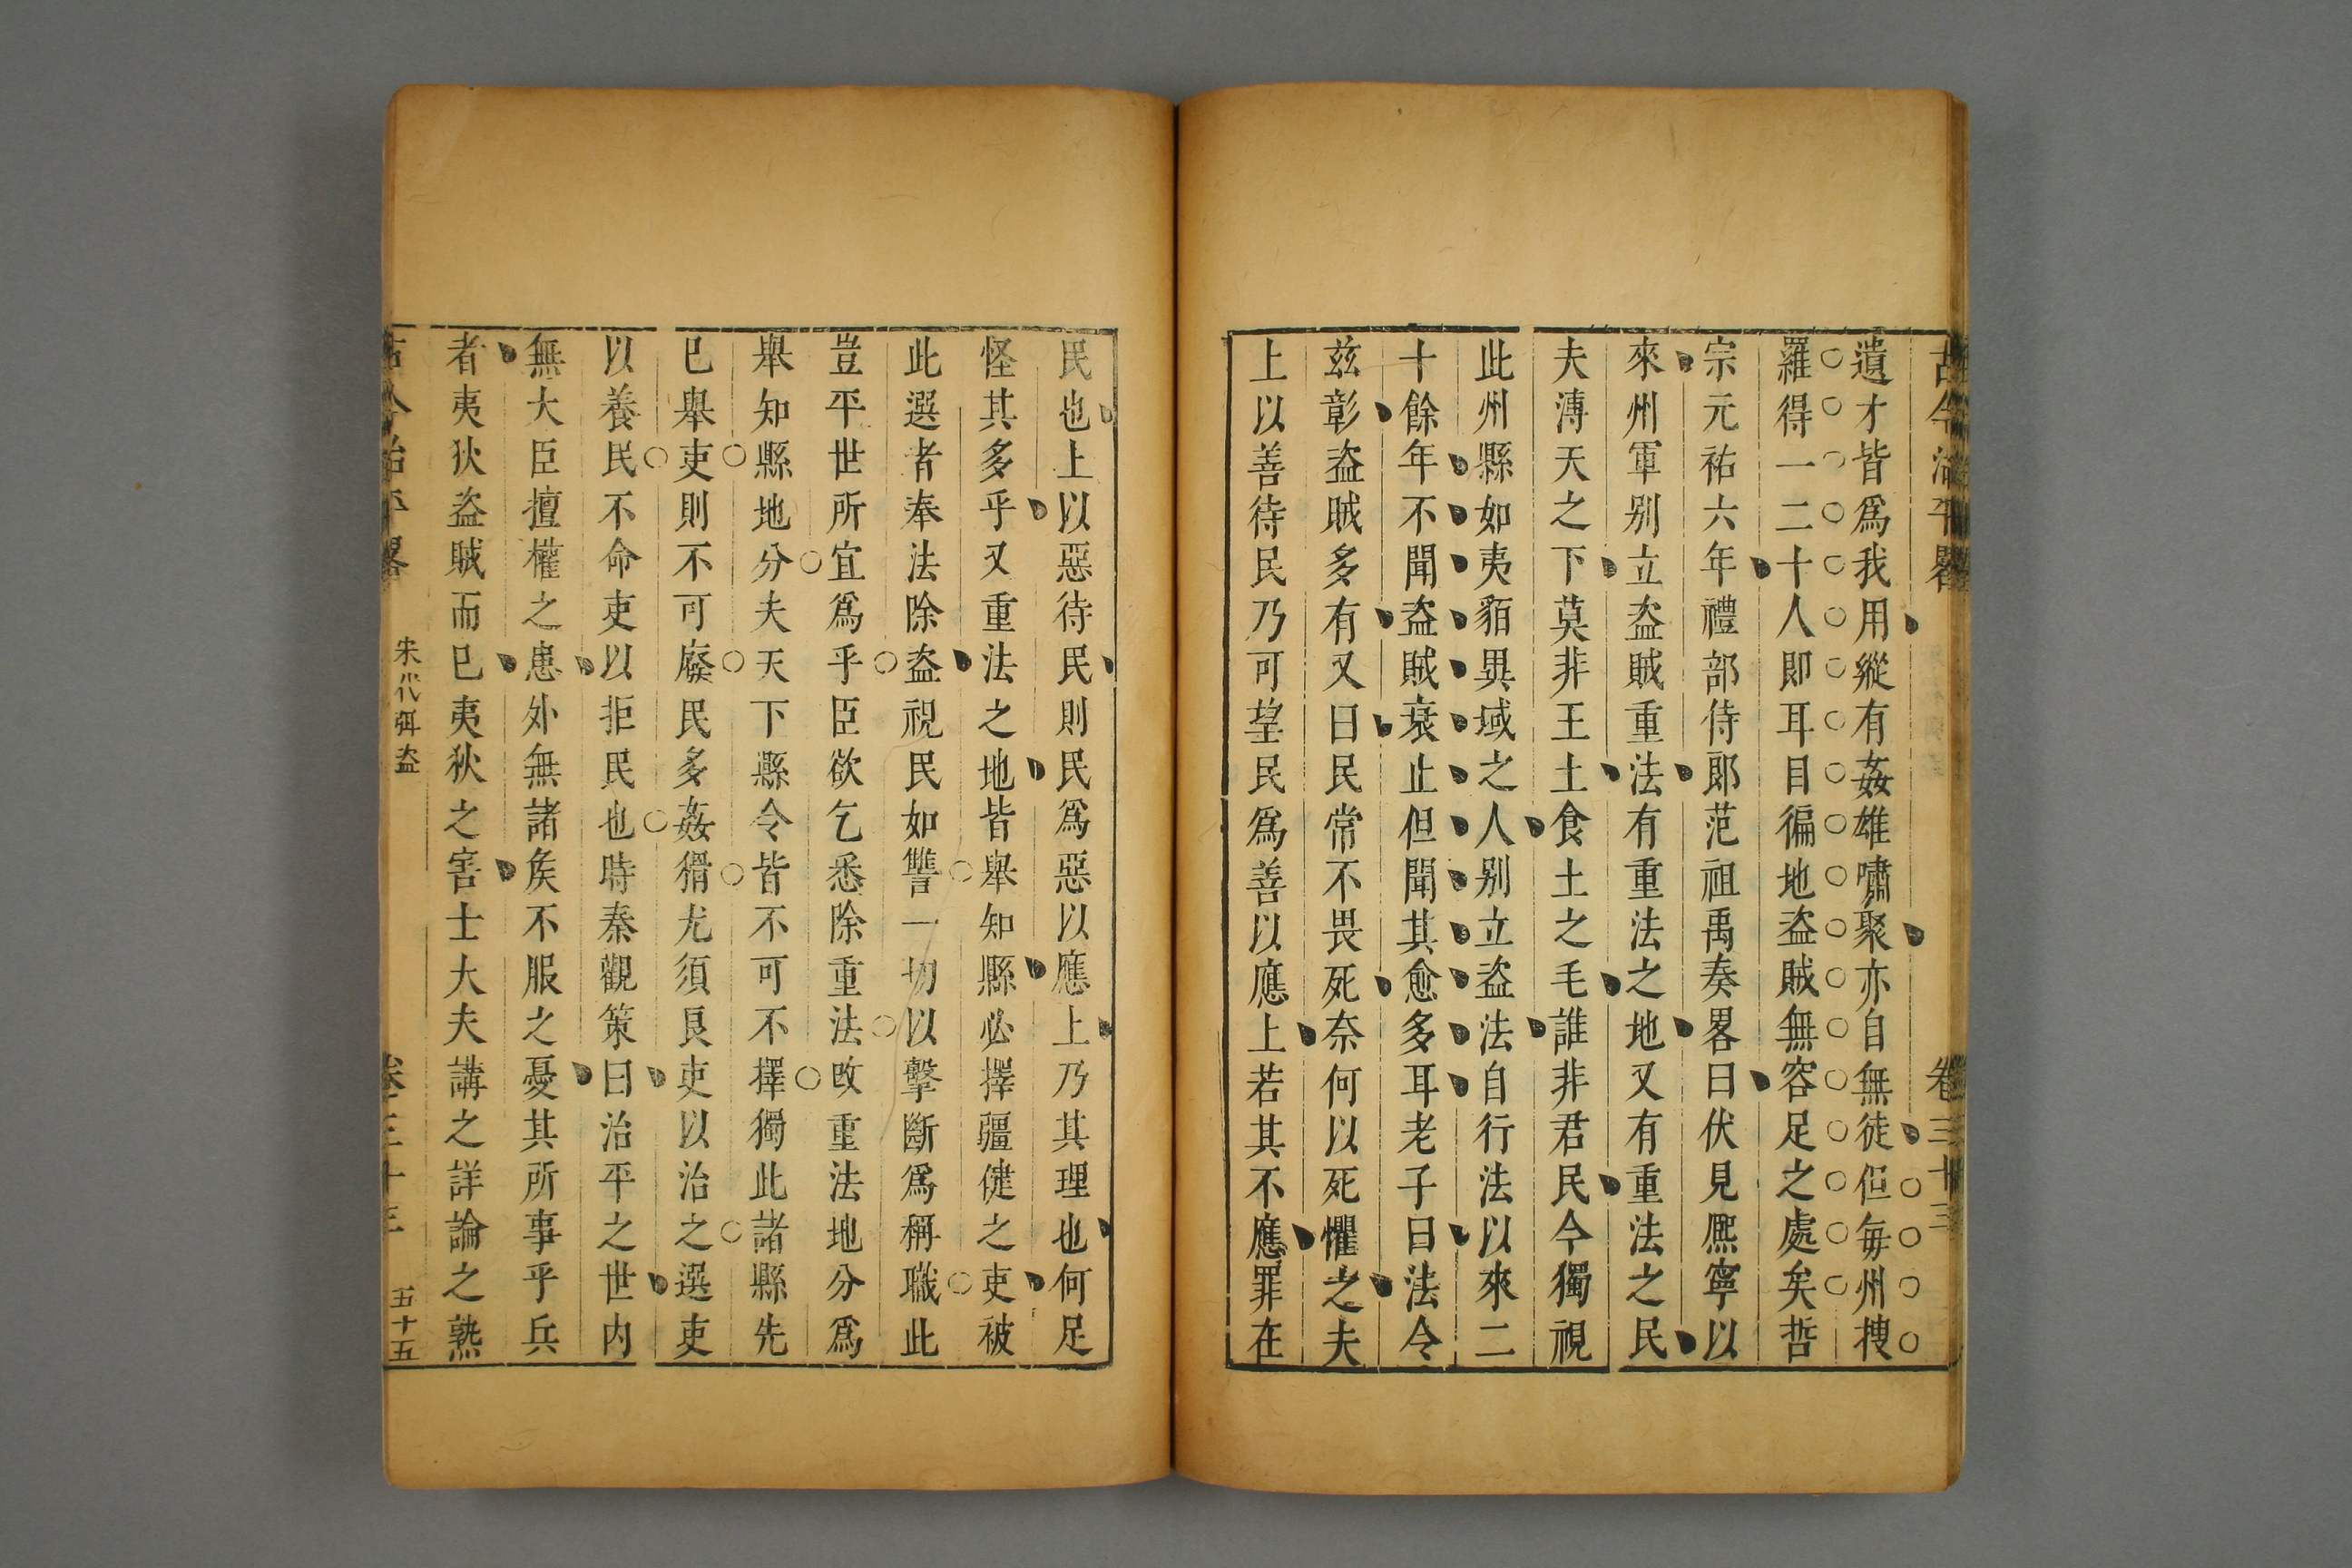 古今治平畧 卷三十三
遺才皆爲我用縱有姦雄嘯聚亦自無徒但每州搜
羅得一二十人即耳目徧地盗賊無容足之處矣哲
宗元祐六年禮部侍郎范祖禹奏畧曰伏見熈寧以
來州軍别立盗賊重法有重法之地又有重法之民
夫溥天之下莫非王土土食土之毛誰非君民今獨視
此州縣如夷貊異域之人别立盗法自行法以來二
十餘年不聞盗賊衰止但聞其愈多耳老子曰法令
茲彰盗賊多有又曰民常不畏死奈何以死懼之夫
上以善待民乃可望民爲善以應上若其不應罪在
民也上以惡待民則民爲惡以應上乃其理也何足
怪其多乎又重法之地皆舉知縣必擇疆健之吏被
此選者奉法除盗視民如讐一切以擊斷爲稱職此
豈平世所宜爲乎臣欲乞悉除重法改重法地分爲
舉知縣地分夫天下縣令皆不可不擇獨此諸縣先
已舉吏則不可廢民多姦猾尤須良吏以治之選吏
以養民不命吏以拒民也時秦觀策曰治平之世内
無大臣擅權之患外無諸矦不服之憂其所事乎兵
者夷狄盗賊而已夷狄之害士大夫講之詳論之熟
古今治平畧 宋代弭盗 卷三十三 五十五